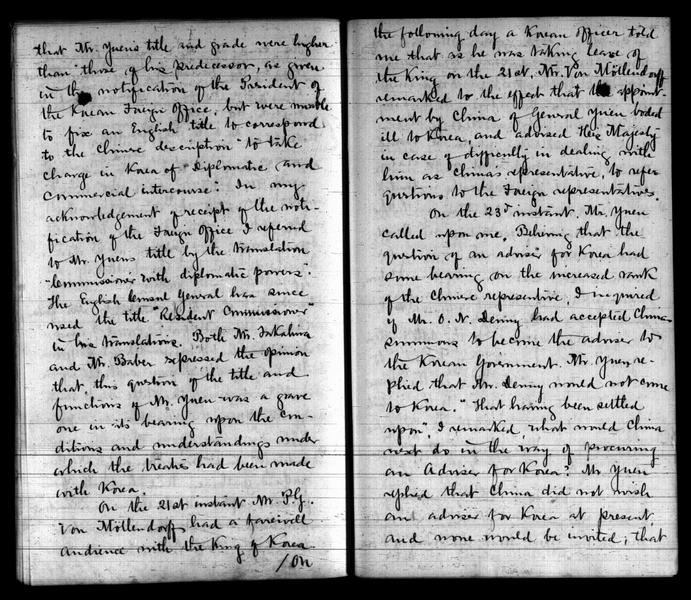 that Mr. Yuen's title and grade were higher
than those of his predecessor, as given
in the notification of the President of
the Korean Foreign Office, but were unable
to fix an English title to correspond
to the Chinese description "to take
charge in Korea of Diplomatic and
Commercial intercourse." In my
acknowledgement of receipt of the noti-
fication of the Foreign Office I referred
to Mr. Yuens title by the translation
"Commissioner with diplomatic powers".
The English Consul General has since
used the title "Resident Commissioner"
in his translations. Both Mr. Takahira
and Mr. Baber expressed the opinion
that this question of the title and
functions of Mr. Yuen was a grave
one in its bearing upon the con-
ditions and understandings under
which the treaties had been made
with Korea.
On the 21st instant Mr. P.G.
Von Möllendorff had a farewell
audience with the King of Korea
/On
the following day a Korean officer told
me that as he was taking leave of
the King on the 21st, Mr. Von Möllendorff
remarked to the effect that the appoint-
ment by China of General Yuen boded
ill to Korea, and advised His Majesty
in case of difficulty in dealing with
him as China's representative, to refer
questions to the Foreign representatives.
On the 23d instant, Mr. Yuen
called upon me. Believing that the
question of an adviser for Korea had
some bearing on the increased rank
of the Chinese representive, I inquired
if Mr. O. N. Denny had accepted China's
summons to become the adviser to
the Korean Government. Mr. Yuen re-
plied that Mr. Denny would not come
to Korea. "That having been settled
upon", I remarked, "what would China
next do in the way of procuring
an Adviser for Korea?" Mr Yuen
replied that China did not wish
an adviser for Korea at present
and none would be invited; that